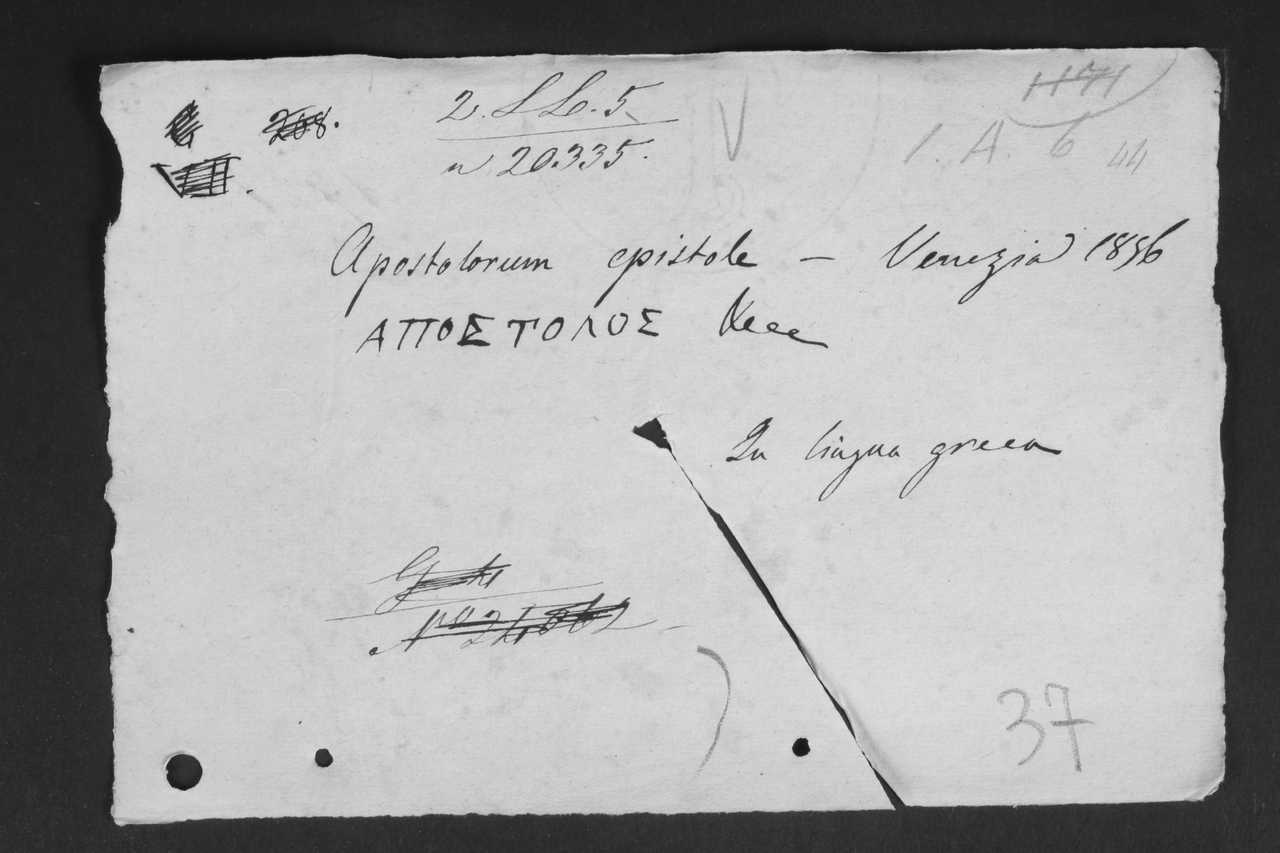 208.
2. L L. 5
n 20.335.
1171
1. A. 6 44
Apostolorum epistole – Venezia 1856
ΑΠΟΣΤΟΛΟΣ
In lingua greca
37